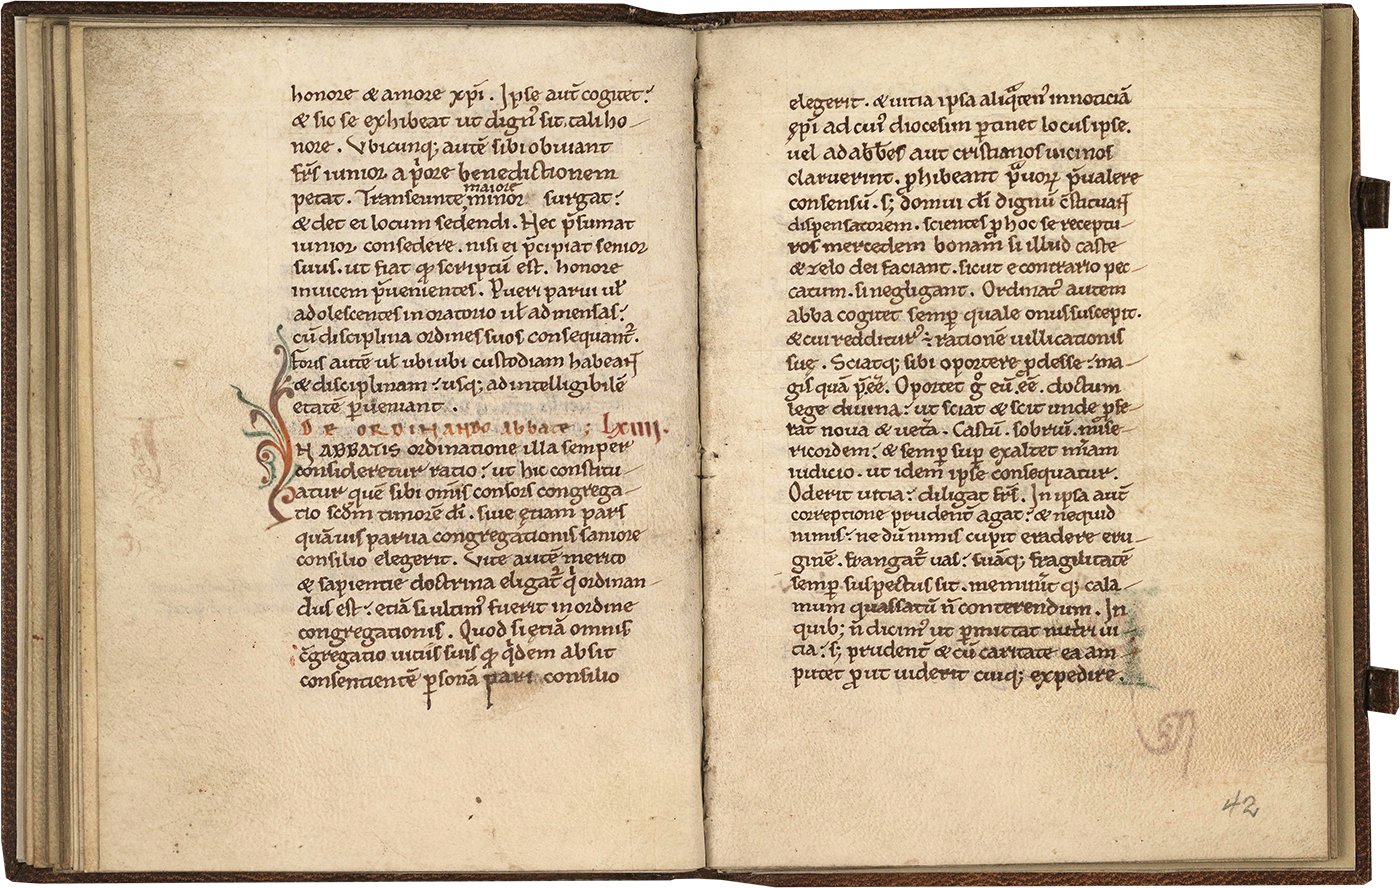 honore & amore xp̄i . Ipse aut̄ cogitet :
& sic se exhibeat ut dignꝰ sit tali ho-
nore . Vbicunq; autē sibi obuiant
fr̄s iunior a p̄ore benedictionem
petat . Transeunte maiore minor surgat :
& det ei locum sedendi . Nec p̄sumat
iunior consedere . nisi ei p̄cipiat senior
suus . ut fiat qđ scriptū est . honore
inuicem p̄uenientes . Pueri parui uł
adolescentes in oratorio uł ad mensas :
cū disciplina ordines suos consequant᷑ .
Foris autē uł ubi ubi custodiam habeant
& disciplinam : usq; ad intelligibilē
etatē ꝑueniant .
DE ORDINANDO abbate ; Lxiiii .
IN ABBATIS ordinatione illa semper
consideretur ratio : ut hic constitu-
atur quē sibi om̄is consors congrega-
tio scd̄m timorē dī . siue ętiam pars
quāuis parua congregationis saniore
consilio elegerit . Vite autē merito
& sapientie doctrina eligat᷑ q̇ ordinan-
dus est : etiā si ultimꝰ fuerit in ordine
congregationis . Quod si ętiā omnis
c̄gregatio uitiis suis qđ q̇dem absit
consentientē ꝑsonā pari consilio
elegerit . & uitia ipsa aliq̄tenꝰ in noticiā
ęp̄i ad cuiꝰ diocesim ꝑtinet locus ipse .
uel ad abb̄es aut cristianos uicinos
claruerint . ꝓhibeant p̄uoꝝ p̄ualere
consensū . s; domui dī dignū c̄stituant
dispensatorem . scientes ꝓ hoc se receptu-
ros mercedem bonam si illud caste
& zelo dei faciant . sicut e contrario pec-
catum . si negligant . Ordinatꝰ autem
abba cogitet semꝑ quale onus suscepit .
& cui redditurꝰ ÷ rationē uillicationis
suę . Sciatq; sibi oportere ꝓdesse : ma-
gis quā p̄ēe . Oportet g̊ eū ēe . doctum
lege diuina : ut sciat & scit unde ꝓfe-
rat noua & uet̄a . Castū . sobriū . mise-
ricordem : & semꝑ suꝑ exaltet mīam
iudicio . ut idem ipse consequatur .
Oderit uitia : diligat fr̄s . In ipsa aut̄
correptione prudent̄ agat : & ne quid
nimis : ne dū nimis cupit eradere eru-
ginē . frangat᷑ uas : suāq; fragilitatē
semꝑ suspectus sit . meminit̄ q; cala-
mum quassatū n̄ conterendum . In
quib; n̄ dicimꝰ ut ꝑmittat nutriri ui-
tia : s; prudent̄ & cū caritate ea am-
putet ꝓut uiderit cuiq; expedire .
42